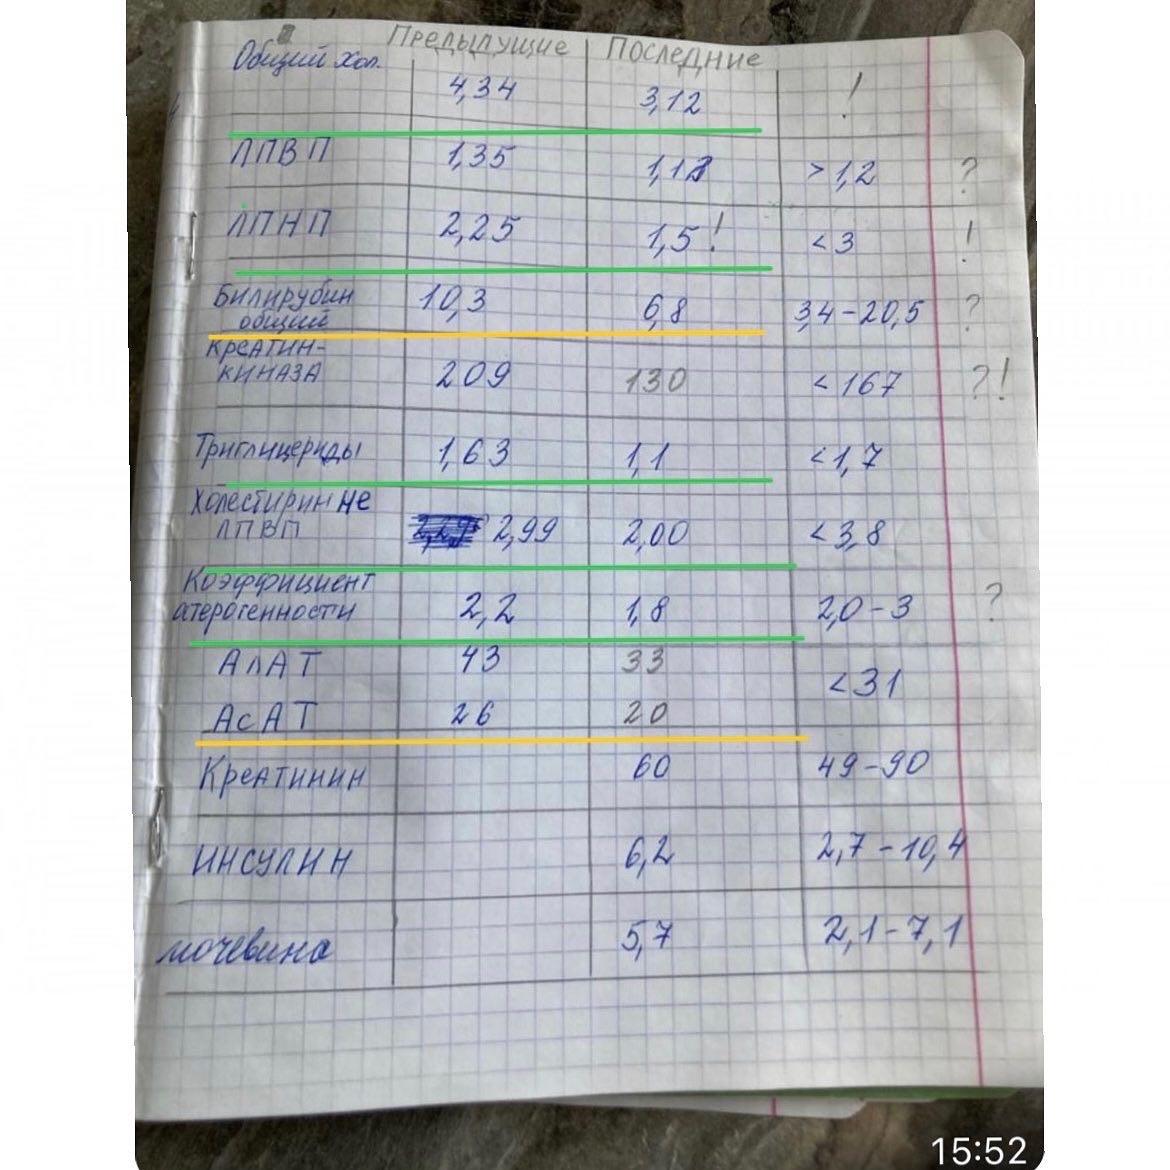 Предыдущие Последние
Общий хол. 4,34 3,12 !
ЛПВП 1,35 1,1 >1,2 ?
ЛПНП 2,25 1,5! <3 !
Билирубин общий 10,3 6,8 3,4-20,5 ?
Креатин-
киназа 209 130 <167 ?!
Триглицериды 1,63 1,1 <1,7
Холестирин не
ЛПВП 2,99 2,00 <3,8
Коэффициент
атерогенности 2,2 1,8 2,0-3 ?
АлАТ 43 33 <31
АсАТ 26 20
Креатинин 60 49-90
Инсулин 6,2 2,7-10,4
мочевина 5,7 2,1-7,1
15:52